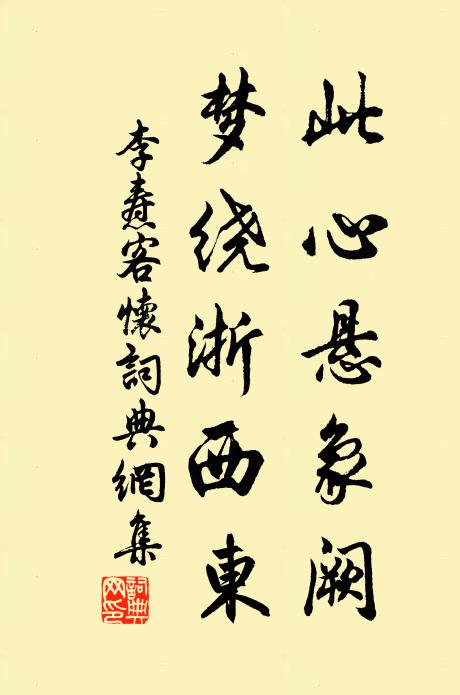 此心悬象阙
梦绕浙西东
李焘客懷詞典網集
詞典网印